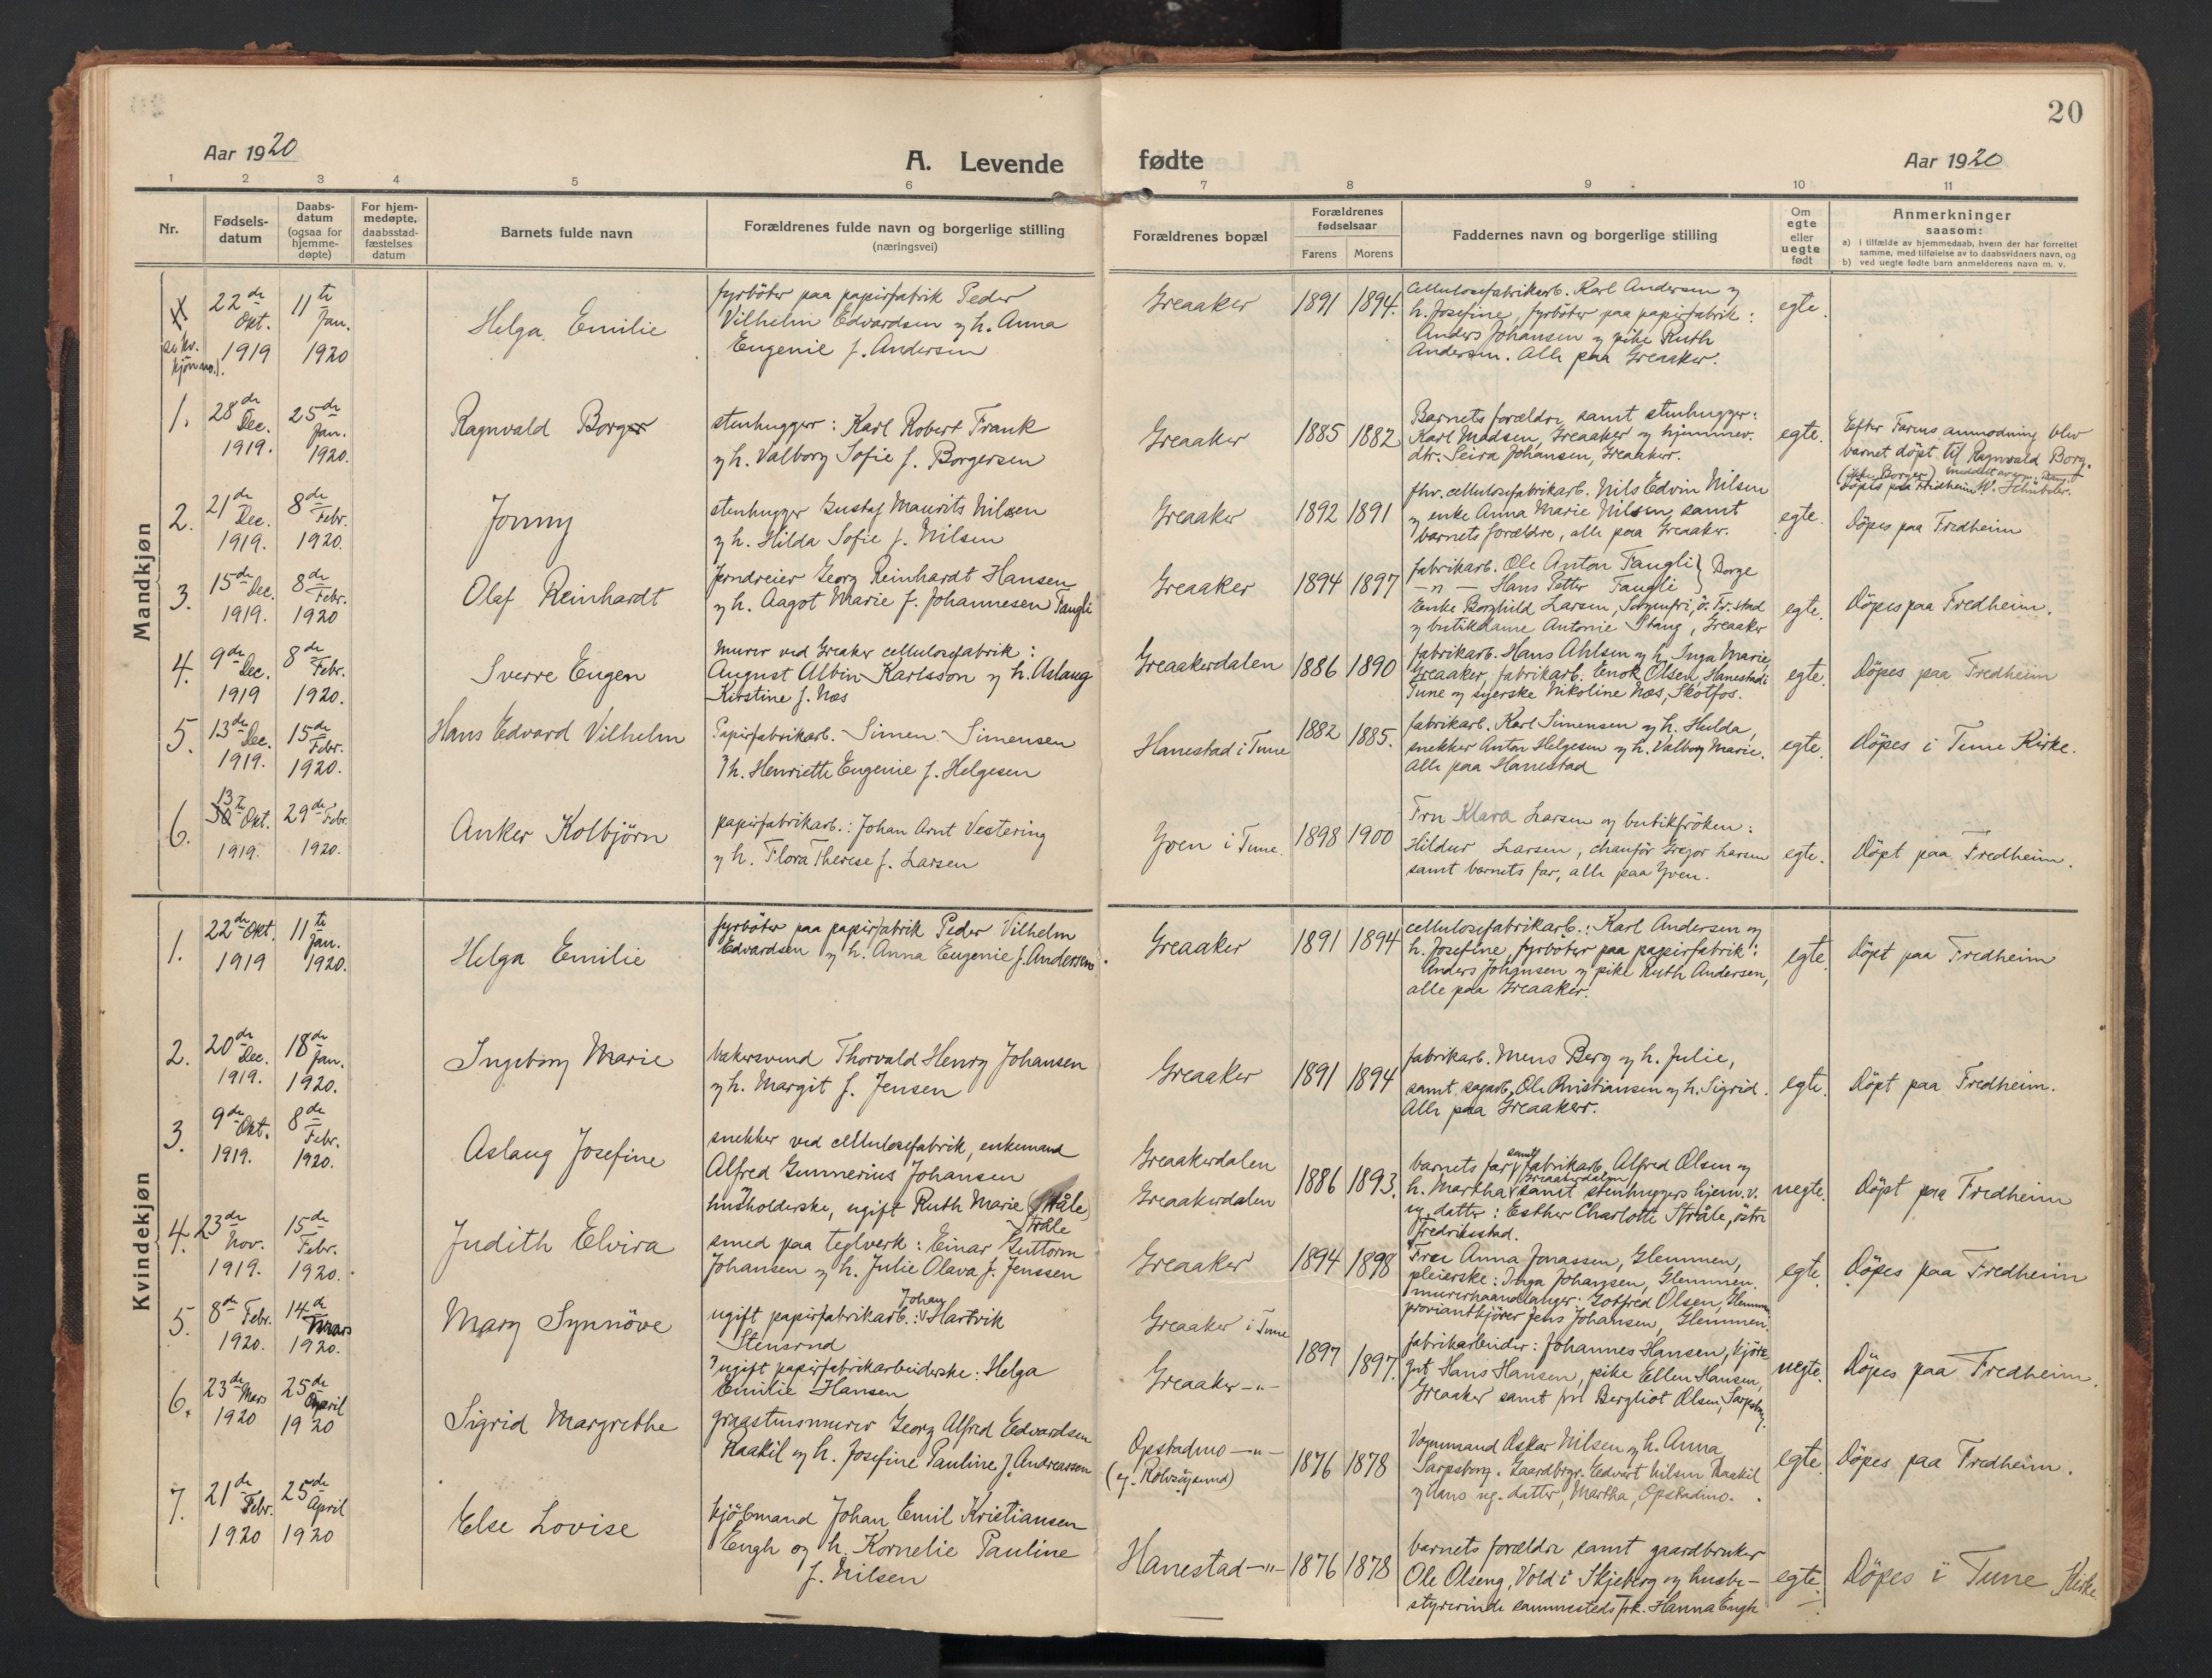 20
Aar 1920
A. Levende fødte
Aar 1920
1 2 3 4 5 6 7 8 9 10 11
Nr.
Fødsels-
datum
Daabs-
datum
(ogsaa for
hjemme-
døpte)
For hjem-
medøpte,
daabsstad-
fæstelses
datum
Barnets fulde navn
Forældrenes fulde navn og borgerlige stilling
(næringsvei)
Forældrenes bopæl
Forældrenes
fødselsaar
Farens Morens
Faddernes navn og borgerlige stilling
Om
egte
eller
uegte
født
Anmerkninger
saasom:
a) i tilfælde av hjemmedaab, hvem der har forrettet
samme, med tilføielse av to daabsvidners navn, og
b) ved uegte fødte barn anmelderens navn m. v.
Mandkjøn
22de Okt. 1919
11te Jan. 1920
Helga Emilie
fyrböter paa papirfabrik Peder
Vilhelm Edvardsen og h. Anna
Eugenie f. Andersen
Greaaker
1891 1894.
Cellulosefabrikarb. Karl Andersen og
h. Josefine, fyrböter paa papirfabrik:
Anders Johansen og pike Ruth
Andersen. Alle paa Greaaker.
egte.
1.
28de Dec. 1919.
25de Jan. 1920.
Ragnvald Borger
stenhugger: Karl Robert Frank
og h. Valborg Sofie f. Borgersen
Greaaker
1885 1882
Barnets forældre samt stenhugger:
Karl Madsen, Greaaker og hjemmev.
dtr. Seira Johansen, Greaaker.
egte.
Efter Farens anmodning blev
barnet döpt til Ragnvald Borg.
(ikke Borger)
Döptes paa Fredheim W. Schübeler.
2.
21de Dec. 1919.
8de Febr. 1920.
Jonny
stenhugger Gustaf Maurits Nilsen
og h. Hilda Sofie f. Nilsen
Greaaker
1892 1891
fhv. cellulosefabrikarb. Nils Edvin Nilsen
og enke Anna Marie Nilsen, samt
barnets forældre, alle paa Greaaker.
egte.
Döpes paa Fredheim
3.
15de Dec. 1919.
8de Febr. 1920
Olaf Reinhardt
Jerndreier Georg Reinhardt Hansen
og h. Aagot Marie f. Johannesen Tangli
Greaaker
1894 1897
fabrikarb. Ole Anton Tangli } Borge
— " — Hans Petter Tangli
Enke Borghild Larsen, Sorgenfri, ö. Fr.stad
og butikdame Antonie Stang, Greaaker
egte.
Döpes paa Fredheim.
4.
9de Dec. 1919
8de Febr. 1920.
Sverre Eugen
Murer ved Greaker cellulosefabrik:
August Albin Karlsson og h. Aslaug
Kirstine f. Næs
Greaakerdalen
1886 1890
fabrikarb. Hans Ahlsen og h. Inga Marie,
Greaaker, fabrikarb. Enok Olsen, Hanestad i
Tune og syerske Nikoline Næs, Skotfos.
egte.
Döpes paa Fredheim
5.
13de Dec. 1919.
15de Febr. 1920.
Hans Edvard Vilhelm
Papirfabrikarb. Simen Simensen
og h. Henriette Eugenie f. Helgesen
Hanestad i Tune
1882 1885.
fabrikarb. Karl Simensen og h. Hulda,
snekker Anton Helgesen og h. Valborg Marie.
Alle paa Hanestad
egte.
Döpes i Tune Kirke.
6.
13de Okt. 1919.
29de Febr. 1920.
Anker Kolbjörn
papirfabrikarb.: Johan Arnt Vestering
og h. Flora Therese f. Larsen
Yven i Tune.
1898 1900
Fru Klara Larsen og butikfröken:
Hildur Larsen, chauför Gregor Larsen
samt barnets far, alle paa Yven.
egte.
Döpt paa Fredheim.
Kvindekjøn
1.
22de Okt. 1919
11te Jan. 1920.
Helga Emilie
fyrböter paa papirfabrik Peder Vilhelm
Edvardsen og h. Anna Eugenie f. Andersen.
Greaaker
1891 1894
cellulosefabrikarb.: Karl Andersen og
h. Josefine, fyrböter paa papirfabrik:
Anders Johansen og pike Ruth Andersen,
alle paa Greaaker.
egte.
Döpt paa Fredheim
2.
20de Dec. 1919.
18de Jan. 1920.
Ingeborg Marie
bakersvend Thorvald Henry Johansen
og h. Margit f. Jensen
Greaaker
1891 1894
fabrikarb. Mens Berg og h. Julie,
samt sagarb. Ole Kristiansen og h. Sigrid.
Alle paa Greaaker.
egte.
Döpt paa Fredheim.
3.
9de Okt. 1919.
8de Febr. 1920.
Aslaug Josefine
snekker ved cellulosefabrik, enkemand
Alfred Gunnerius Johansen
og husholderske, ugift Ruth Marie (Stråle)
Stråle
Greaakerdalen
Greaakerdalen
1886 1893.
barnets far, samt fabrikarb. Alfred Olsen og
h. Martha Greaakerdalen, samt stenhuggers hjem.v.
ug. datter: Esther Charlotte Stråle, östre
Fredriksstad.
uegte.
Döpt paa Fredheim
4.
23de Nov. 1919.
15de Febr. 1920.
Judith Elvira
smed paa teglverk: Einar Guttorm
Johansen og h. Julie Olava f. Jenssen
Greaaker
1894 1898
Frøe Anna Jonassen, Glemmen,
pleierske: Inga Johansen, Glemmen.
murerhaandlanger: Gotfred Olsen, Glemmen
proviantkjörer Jens Johansen, Glemmen.
egte.
Döpes paa Fredheim
5.
8de Febr. 1920.
14de Mars 1920.
Mary Synnöve
ugift papirfabrikarb.: Johan Hartvik
Stensrud
og ugift papirfabrikarbeiderske: Helga
Emilie Hansen
Greaaker i Tune
Greaaker —"—
1897 1897.
fabrikarbeider: Johannes Hansen, kjöre-
gut Hans Hansen, pike Ellen Hansen,
Greaaker samt frk Bergliot Olsen, Sarpsborg.
uegte.
Döpes paa Fredheim.
6.
23de Mars 1920
25de April 1920
Sigrid Margrethe
graastensmurer Georg Alfred Edvardsen
Raakil og h. Josefine Pauline f. Andreassen
Opstadmo —"—
(ej. Rolvsöysund)
1876 1878
Vognmand Oskar Nilsen og h. Anna
Sarpsborg. Gaardbrgr. Edvart Nilsen Raakil
og hans ug. datter, Martha, Opstadmo.
egte.
Döpes paa Fredheim.
7.
21de Febr. 1920
25de April 1920
Else Lovise
kjöbmand Johan Emil Kristiansen
Engh og h. Kornelie Pauline
f. Nilsen
Hanestad —"—
1876 1878
barnets forældre samt gaardbruker
Ole Olseng, Vold i Skjeberg og husbe-
styrerinde sammesteds frk. Hanna Engh
egte.
Döpes i Tune Kirke